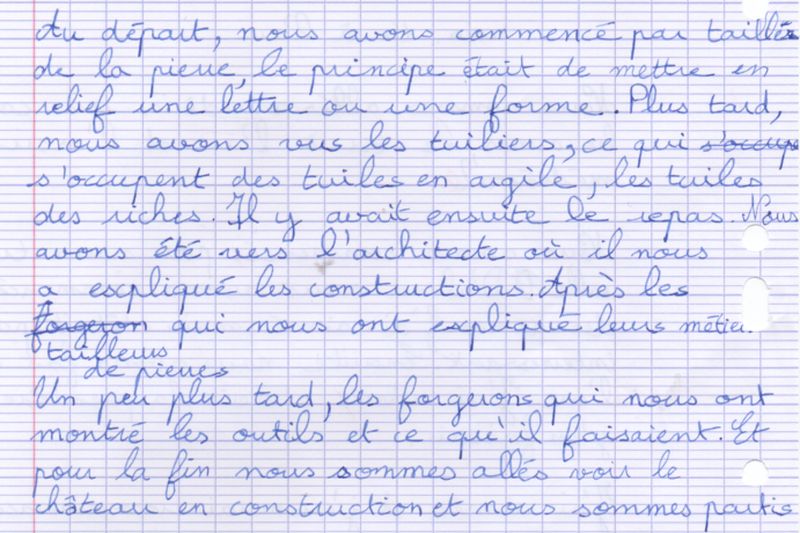 Au départ, nous avons commencé par tailler
de la pierre, le principe était de mettre en
relief une lettre ou une forme. Plus tard,
nous avons vus les tuiliers, ce qui s'occupe
s'occupent des tuiles en argile, les tuiles
des riches. Il y avait ensuite le repas. Nous
avons été vers l'architecte où il nous
a expliqué les constructions. Après les
forgeron qui nous ont expliqué leurs métier.
tailleurs
de pierres
Un peu plus tard, les forgerons qui nous ont
montré les outils et ce qu'il faisaient. Et
pour la fin nous sommes allés voir le
château en construction et nous sommes partis